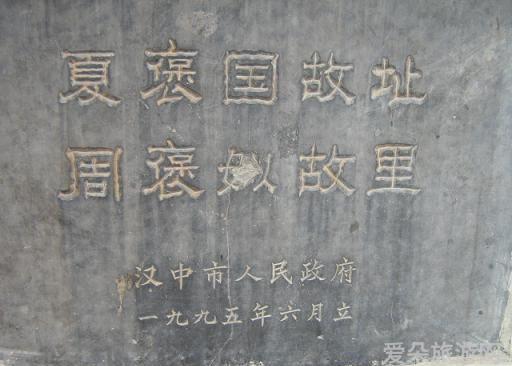 夏褒国故址
周褒姒故里
汉中市人民政府
一九九五年六月立
爱朵旅游网